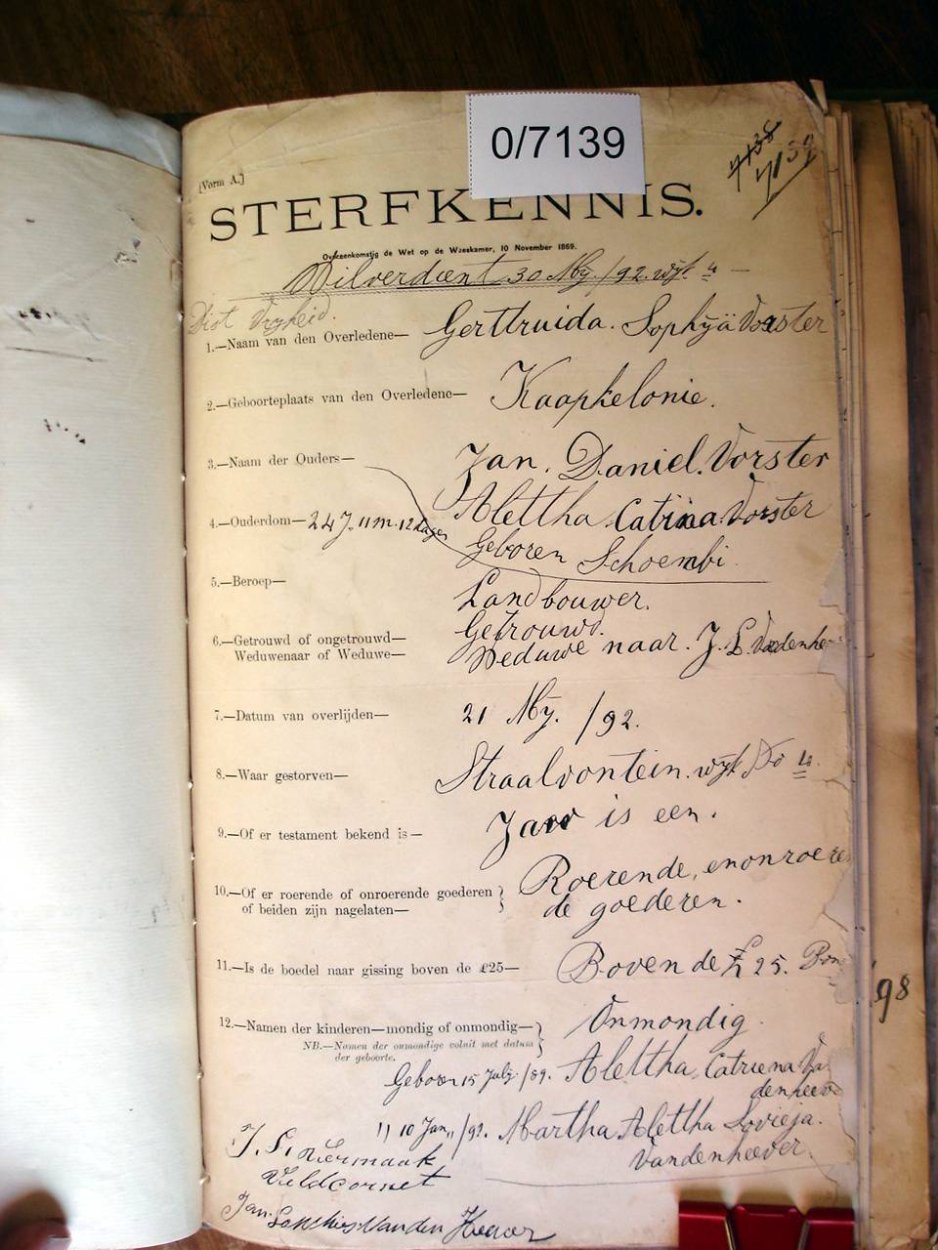 0/7139
7138
7139
[Vorm A.]
STERFKENNIS.
Overeenkomstig de Wet op de Weeskamer, 10 November 1869.
Wilverdient 30 My. /92. wyk 4
Dist Vryheid.
1.—Naam van den Overledene— Gerttruida. Sophÿa Vorster
2.—Geboorteplaats van den Overledene— Kaapkelonie.
3.—Naam der Ouders— Jan. Daniel. Vorster
4.—Ouderdom—24 J. 11 m. 12 dagen Alettha Catrina Vorster
Geboren Schoembi
5.—Beroep— Landbouwer.
6.—Getrouwd of ongetrouwd— Getrouwd.
Weduwenaar of Weduwe— Weduwe naar. J. L.
7.—Datum van overlijden— 21 My. /92.
8.—Waar gestorven— Straalvontein. wyk No 4.
9.—Of er testament bekend is— Jaar is een.
10.—Of er roerende of onroerende goederen } Roerende, en onroeren
of beiden zijn nagelaten— de goederen.
11.—Is de boedel naar gissing boven de £25— Boven de £ 25.
12.—Namen der kinderen—mondig of onmondig— } Onmondig.
NB.—Namen der onmondige voluit met datum
der geboorte.
Geboren 15 July /89. Alettha Catriena Va
denheever
11 10 Jan, /92. Martha Alettha Sovieja.
Vandenheever.
J. S.
Veldcornet
Jan. Vanden Heever
'98